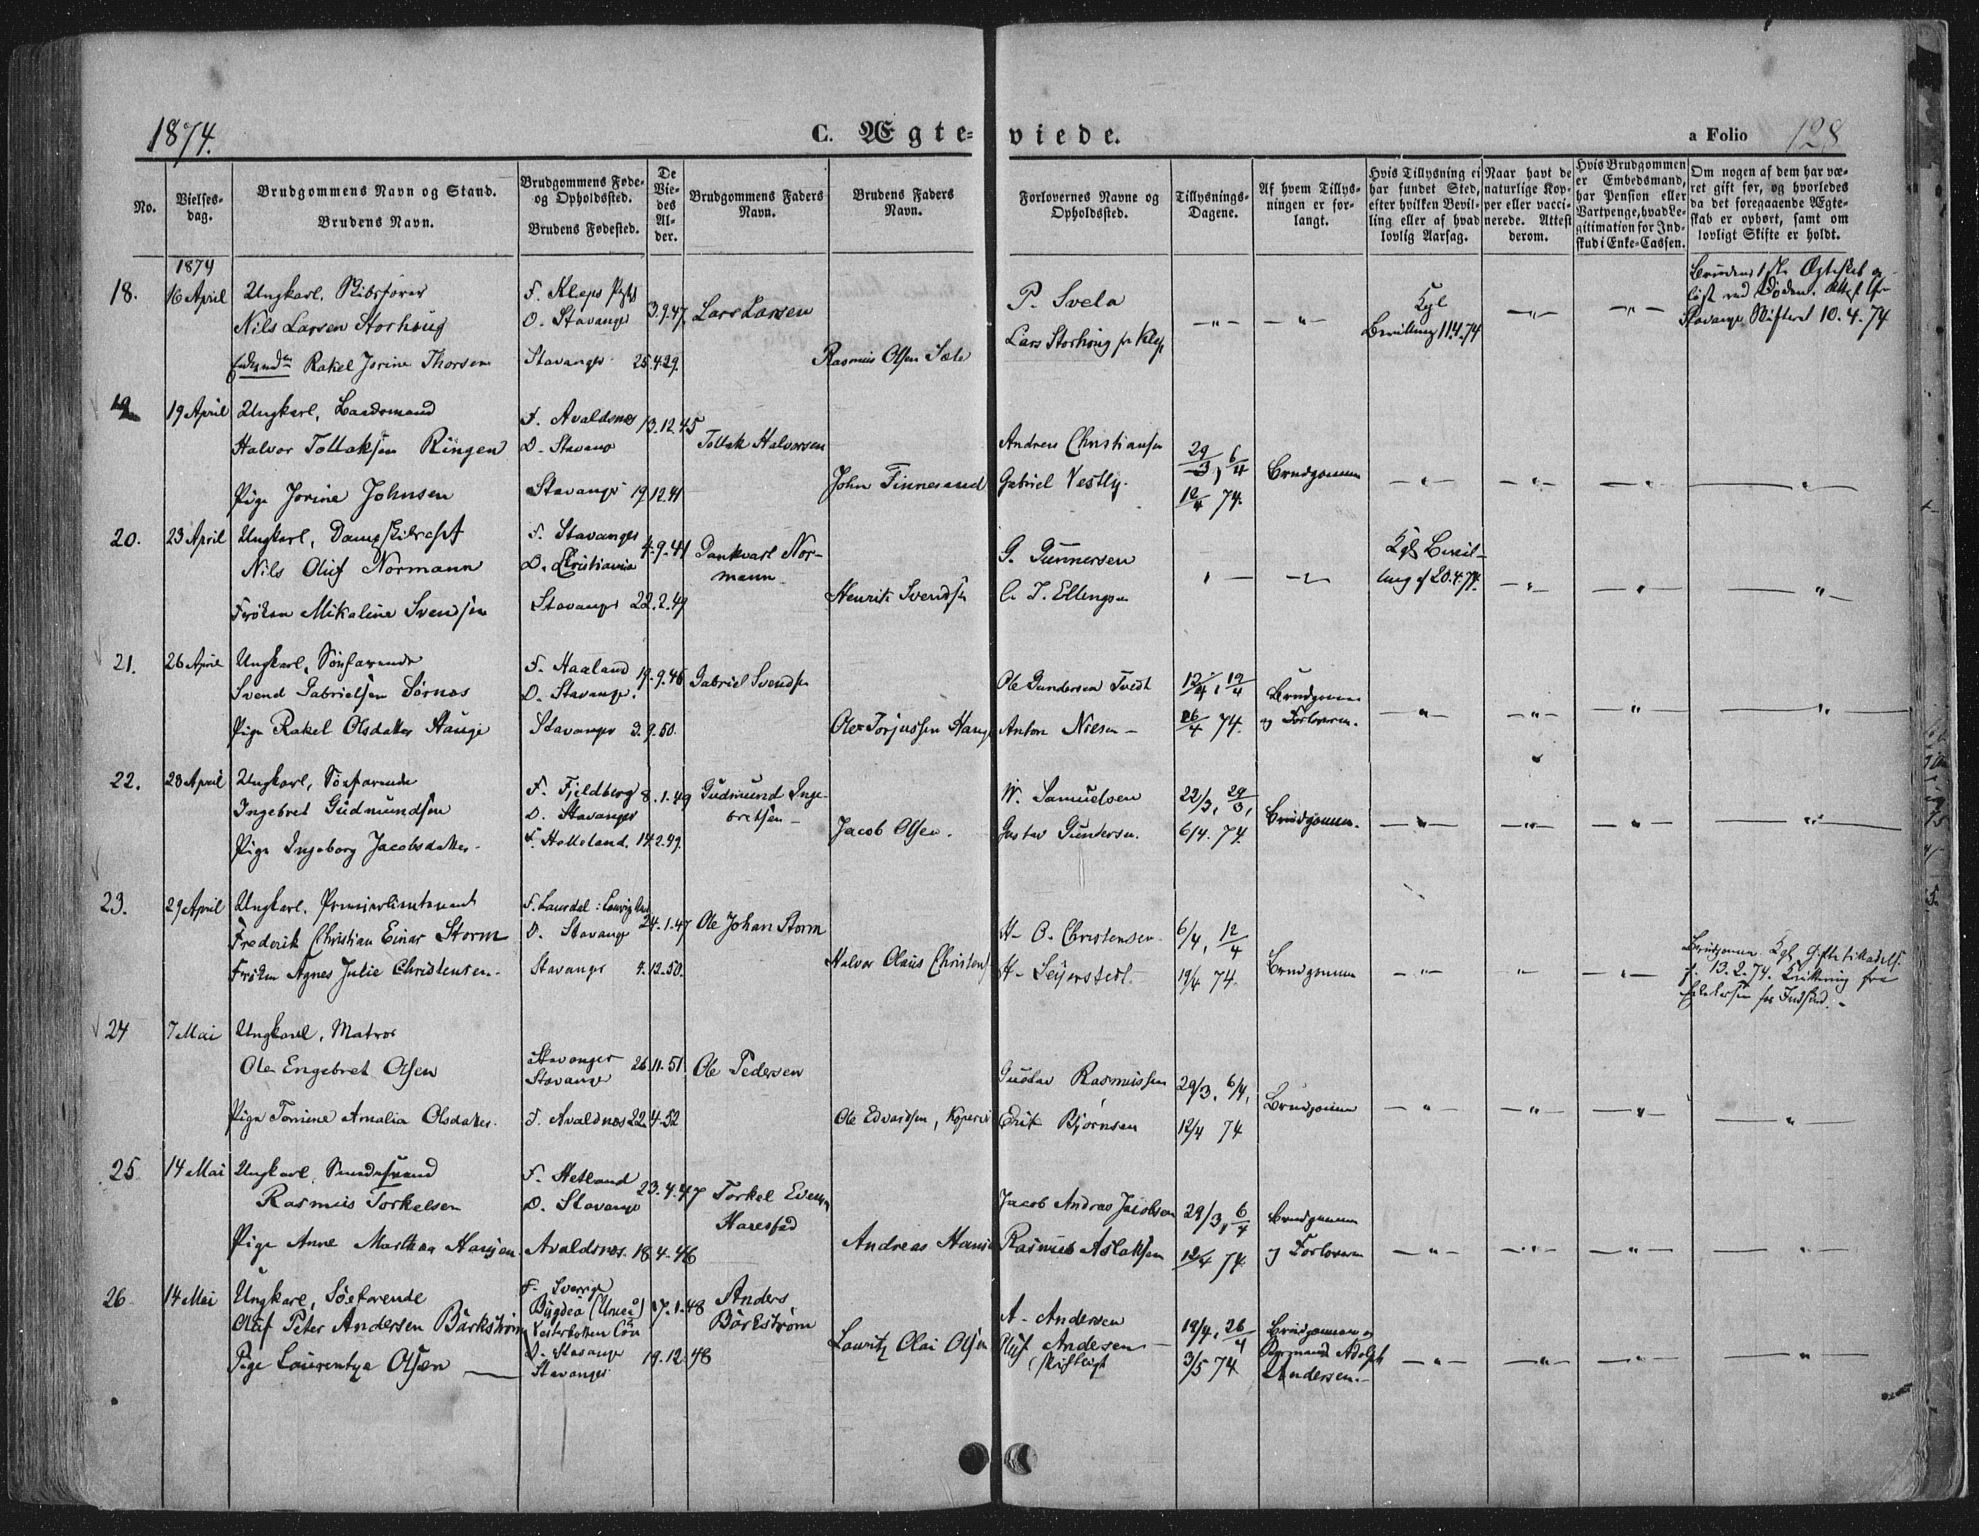 1874.
C. Ægte-
viede.
a Folio
128
No.
Vielses-
dag.
Brudgommens Navn og Stand.
Brudens Navn.
Brudgommens Føde-
og Opholdssted.
Brudens Fødested.
De
Vie-
des
Al-
der.
Brudgommens Faders
Navn.
Brudens Faders
Navn.
Forlovernes Navne og
Opholdssted.
Tillysnings-
Dagene.
Af hvem Tillys-
ningen er for-
langt.
Hvis Tillysning ei
har fundet Sted,
efter hvilken Bevil-
ling eller af hvad
lovlig Aarsag.
Naar havt de
naturlige Kop-
per eller vacci-
nerede. Attest
derom.
Hvis Brudgommen
er Embedsmand,
har Pension eller
Vartpenge, hvad Le-
gitimation for Ind-
skud i Enke-Cassen.
Om nogen af dem har væ-
ret gift før, og hvorledes
da det foregaaende Ægte-
skab er ophørt, samt om
lovligt Skifte er holdt.
1874
18.
16 April
Ungkarl.
Nils Larsen Storhoug
Rakel Jorine Thorsen
F. Klep
O. Stavanger
3.9.47
Stavanger
25.4.29.
Lars Larsen
Rasmus Olsen
P. Svela
Lars Storhoug fr Klep
Kgl
Bevilling 11.4.74
Stavanger Skifteret 10.4.74
19
19 April
Ungkarl, Baadsmand
Halvor Tollaksen Ringen
Pige Jorine Johnsen
F. Avaldsnes
O. Stavang
13.12.45
Stavanger
19.12.41
Tollak Halvorsen
John Finnesand
Andreas Christiansen
Gabriel Vestly.
29/3, 6/4
12/4 74.
Brudgommen
20.
23 April
Ungkarl,
Nils Oluf Normann
Frøken Mikaline Svendsen
F. Stavanger
O. Christiania
4.9.41
Stavanger
22.2.49
Dankvart Nor-
mann
Henrik Svendsen
G. Gunnersen
C. T. Ellingsen
Kgl Bevil-
ling af 20.4.74.
21.
26 April
Ungkarl, Søefarende
Svend Gabrielsen Sørnes
Pige Rakel Olsdatter Hauge
F. Haaland
O. Stavanger.
19.9.46
Stavanger
3.9.50.
Gabriel Svendsen
Ole Torjussen Hauge
Ole Gundersen Tvedt
Anton Nilsen
12/4, 19/4
26/4 74.
Brudgommen
og Forloveren.
22.
28 April
Ungkarl, Søefarende
Ingebret Gudmundsen
Pige Ingeborg Jacobsdatter
F. Fjeldberg
O. Stavanger
8.1.49
F. Helleland
14.2.49.
Gudmund Inge-
bretsen
Jacob Olsen.
W. Samuelsen
Gustav Gundersen.
22/3, 29/3,
6/4. 74.
Brudgommen.
23.
29 April
Ungkarl. Premierlieutenant
Frederik Christian Einar Storm
Frøken Agnes Julie Christensen
O. Stavanger
24.1.47
Stavanger
4.12.50.
Ole Johan Storm
Halvor Olaus Christensen
H. O. Christensen
H. Seyerstedt.
6/4, 12/4
19/4 74.
Brudgommen
Brudgommen Kgl. Giftetilladelse
f. 13.2.74. Kvittering fra
for Indskud.
24
7 Mai
Ungkarl, Matros
Ole Engebret Olsen
Pige Tomine Amalia Olsdatter.
Stavanger
Stavanger
26.11.51
F. Avaldsnes
22.4.52
Ole Pedersen
Ole Edvardsen, Kopervik
Gustav Rasmussen
Erik Bjørnsen
29/3, 6/4,
12/4 74
Brudgommen
25
14 Mai
Ungkarl,
Rasmus Torkelsen
Pige Anne Marthea Hansen
F. Hetland
O. Stavanger
23.4.47
Avaldsnes.
18.4.46
Torkel Evensen
Harestad
Andreas Hansen
Jacob Andreas Jacobsen
Rasmus Aslaksen
29/3, 6/4
12/4 74.
Brudgommen
og Forloveren
26
14 Mai
Ungkarl, Søefarende
Oluf Peter Andersen Bärkström
Pige Laurentza Olsen
F. Sverige
Bygdeå (Umeå)
Vesterbotten
O. Stavanger
17.1.48
Stavanger
19.12.48
Anders
Bärkström
Lauritz Olai Olsen
A. Andersen
Oluf Andersen
(skriftligt
19/4, 26/4
3/5 74
Brudgommen og
Adolph
Andersen.